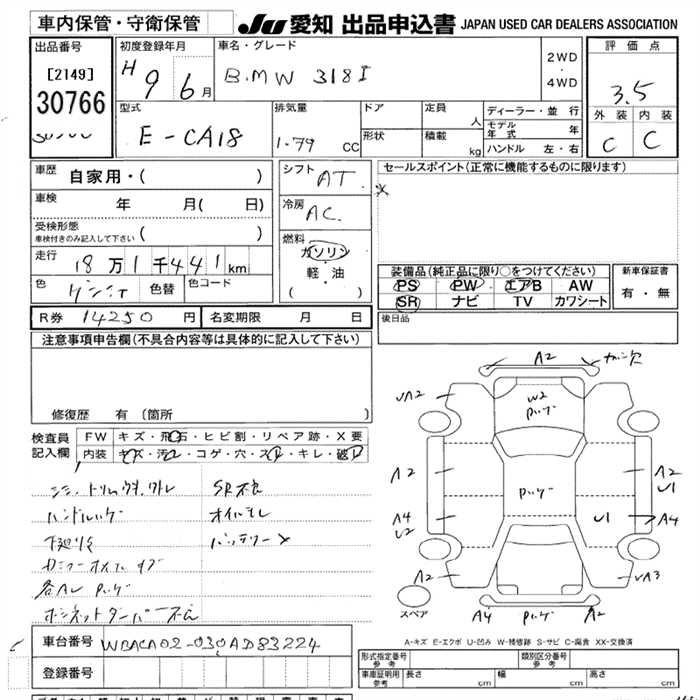 車内保管・守衛保管
JU 愛知 出品申込書 JAPAN USED CAR DEALERS ASSOCIATION
出品番号
[2149]
30766
初度登録年月
H 9 6月
車名・グレード
BMW 318I
2WD
・
4WD
評価点
3.5
外装 内装
C C
型式
E-CA18
排気量
1.79 CC
ドア
形状
定員
人
積載
kg
ディーラー・並行
モデル年式 年
ハンドル 左・右
車歴 自家用・( )
車検 年 月( 日)
受検形態
車検付きのみ記入して下さい ( )
走行 18万1千441km
色
色替
色コード
シフト AT
冷房 AC
燃料
ガソリン
・
軽・油
( )
セールスポイント(正常に機能するものに限ります)
装備品(純正品に限り○をつけてください)
PS PW エアB AW
SR ナビ TV カワシート
新車保証書
有・無
R券 14250 円
名変期限 月 日
後日品
注意事項申告欄(不具合内容等は具体的に記入して下さい)
修復歴 有 (箇所 )
検査員
記入欄
FW キズ・飛石・ヒビ割・リペア跡・X要
内装 キズ・汚レ・コゲ・穴・スレ・キレ・破レ
SR不良
オイルモレ
バッテリー×
A2
UA2
W2
A2
A2
U1
A4
U2
U1
A4
A2
UA3
スペア
A4
A2
A-キズ E-エクボ U-凹み W-補修跡 S-サビ C-腐食 XX-交換済
車台番号 WBACA02-030AD83224
登録番号
形式指定番号
参考
類別区分番号
参考
車庫証明用
参考
長さ cm
幅 cm
高さ cm